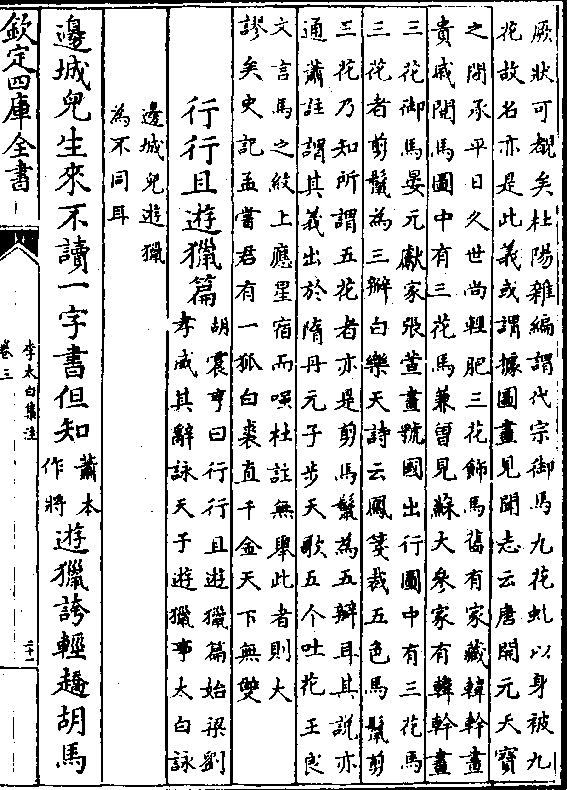 厥狀可覩矣杜陽雜編謂代宗御馬九花虬以身被九
花故名亦是此義或謂據圖畫見聞志云唐開元天寶
之間承平日久世尚輕肥三花飾馬舊有家藏韓幹畫
貴戚閱馬圖中有三花馬兼曽見蘇大參家有韓幹畫
三花御馬晏元獻家張萱畫虢國出行圖中有三花馬
三花者剪鬃為三辮白樂天詩云鳳箋裁五色馬鬃剪
三花乃知所謂五花者亦是剪馬鬃為五辮耳其說亦
通蕭註謂其義出於隋丹元子步天歌五个吐花王良
文言馬之紋上應星宿而嘆杜註無舉此者則大
謬矣史記孟嘗君有一狐白裘直千金天下無雙
行行且遊獵篇
胡震亨曰行行且遊獵篇始梁劉
孝威其辭詠天子遊獵事太白詠
邊城兒遊獵
為不同耳
邊城兒生來不讀一字書但知
蕭本
作將
遊獵誇輕趫胡馬
欽定四庫全書
李太白集注
卷三
二十一